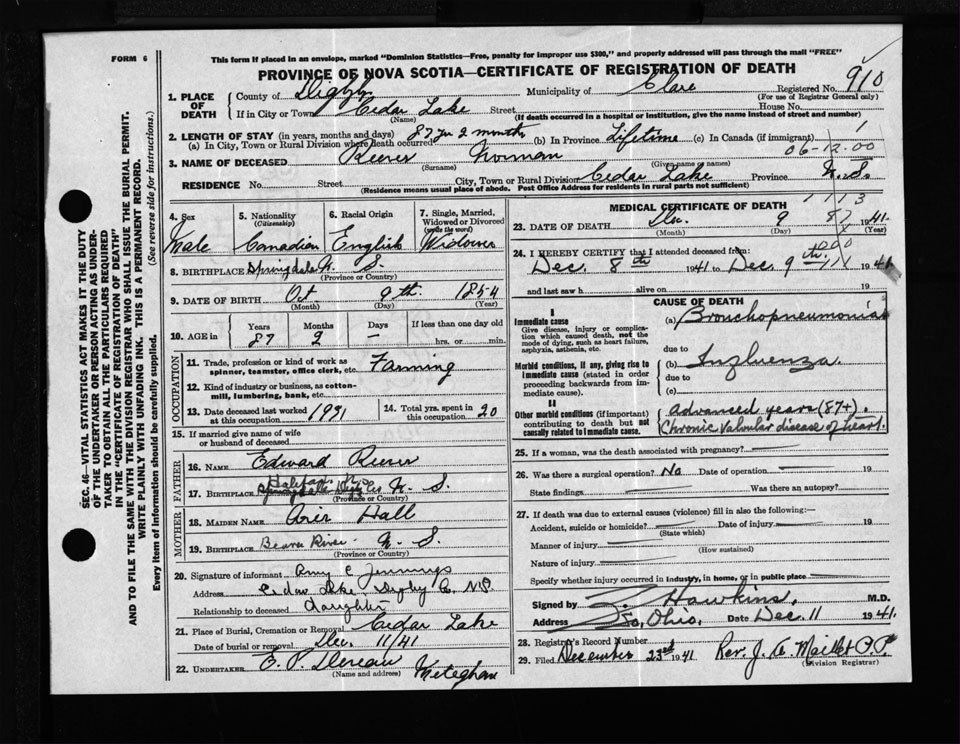 FORM 6
This form if placed in an envelope, marked "Dominion Statistics—Free, penalty for improper use $300," and properly addressed will pass through the mail "FREE"
PROVINCE OF NOVA SCOTIA—CERTIFICATE OF REGISTRATION OF DEATH
910
1. PLACE OF DEATH
County of Digby Municipality of Clare Registered No.
(For use of Registrar General only)
If in City or Town Cedar Lake Street House No.
(Name) (If death occurred in a hospital or institution, give the name instead of street and number)
2. LENGTH OF STAY (in years, months and days)
(a) In City, Town or Rural Division where death occurred 87 yr 2 months (b) In Province Lifetime (c) In Canada (if immigrant)
06-12.00
3. NAME OF DECEASED Norman
(Surname) (Given name or names)
RESIDENCE No. Street City, Town or Rural Division Cedar Lake Province N.S.
(Residence means usual place of abode. Post Office Address for residents in rural parts not sufficient)
4. Sex
Male
5. Nationality (Citizenship)
Canadian
6. Racial Origin
English
7. Single, Married, Widowed or Divorced (write the word)
Widower
8. BIRTHPLACE Springdale N. S.
(Province or Country)
9. DATE OF BIRTH Oct 9th 1854
(Month) (Day) (Year)
10. AGE in Years Months Days If less than one day old
87 2 — hrs. or min.
OCCUPATION
11. Trade, profession or kind of work as spinner, teamster, office clerk, etc. Farming
12. Kind of industry or business, as cotton-mill, lumbering, bank, etc.
13. Date deceased last worked at this occupation 1931
14. Total yrs. spent in this occupation 20
15. If married give name of wife or husband of deceased
FATHER
16. NAME Edward
17. BIRTHPLACE Halifax N. S.
(Province or Country)
MOTHER
18. MAIDEN NAME Hall
19. BIRTHPLACE Beaver River N. S.
(Province or Country)
20. Signature of informant Amy E Jennings
Address Cedar Lake Digby Co. N.S.
Relationship to deceased daughter
21. Place of Burial, Cremation or Removal Cedar Lake
Date of burial or removal Dec. 11/41
22. UNDERTAKER Meteghan
(Name and address)
MEDICAL CERTIFICATE OF DEATH
23. DATE OF DEATH Dec. 9 1941
(Month) (Day) (Year)
24. I HEREBY CERTIFY that I attended deceased from:
Dec. 8th 1941 to Dec. 9th 1941
and last saw h alive on 19
CAUSE OF DEATH
I
Immediate cause
Give disease, injury or complication which caused death, not the mode of dying, such as heart failure, asphyxia, asthenia, etc.
(a) Bronchopneumonia
due to
Morbid conditions, if any, giving rise to immediate cause (stated in order proceeding backwards from immediate cause).
(b) Influenza
due to
(c)
II
Other morbid conditions (if important) contributing to death but not causally related to immediate cause.
Advanced years (87+).
Chronic valvular disease of heart.
25. If a woman, was the death associated with pregnancy?
26. Was there a surgical operation? No Date of operation 19
State findings Was there an autopsy?
27. If death was due to external causes (violence) fill in also the following:—
Accident, suicide or homicide? Date of injury 19
(State which)
Manner of injury
(How sustained)
Nature of injury
Specify whether injury occurred in industry, in home, or in public place
Signed by Hawkins, M.D.
Address Date Dec. 11 1941.
28. Registrar's Record Number
29. Filed December 23rd 1941 Rev. J. A. Maillet P.P.
(Division Registrar)
SEC. 46—VITAL STATISTICS ACT MAKES IT THE DUTY
OF THE UNDERTAKER OR PERSON ACTING AS UNDER-
TAKER TO OBTAIN ALL THE PARTICULARS REQUIRED
IN THE "CERTIFICATE OF REGISTRATION OF DEATH"
AND TO FILE THE SAME WITH THE DIVISION REGISTRAR WHO SHALL ISSUE THE BURIAL PERMIT.
WRITE PLAINLY WITH UNFADING INK. THIS IS A PERMANENT RECORD.
Every item of information should be carefully supplied. (See reverse side for instructions.)